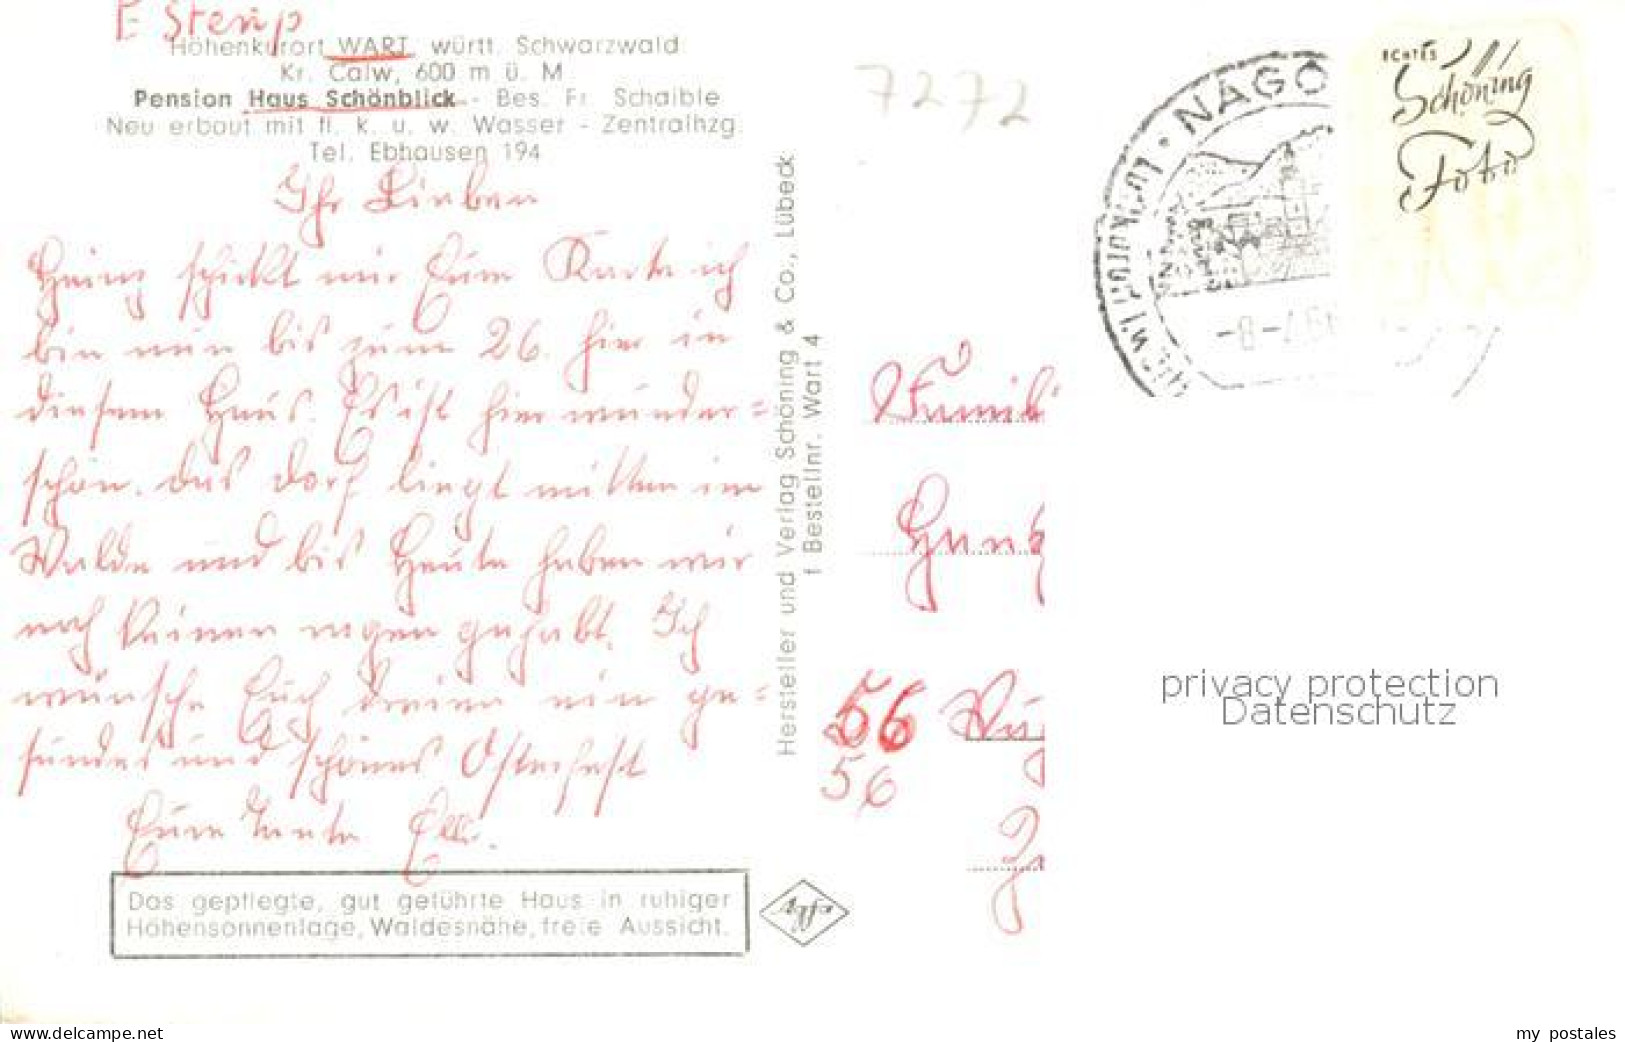 E Sterup
Höhenkurort WART württ. Schwarzwald
Kr. Calw, 600 m ü. M
Pension Haus Schönblick - Bes. Fr. Schaible
Neu erbaut mit fl. k. u. w. Wasser - Zentralhzg.
Tel. Ebhausen 194
Ihr Lieben
Heinz schickt mir Eure Karte ich
bin nun bis zum 26. hier in
diesem Haus. Es ist hier wunder=
schön. das dorf liegt mitten im
Walde und bis Heute haben wir
noch keinen regen gehabt. Ich
wünsche Euch dreien ein ge=
sundes und schönes Osterfest
Eure Tante Elli.
Das gepflegte, gut geführte Haus in ruhiger
Höhensonnenlage, Waldesnähe, freie Aussicht.
Hersteller und Verlag Schöning & Co., Lübeck
f Bestellnr. Wart 4
7272
NAGO
LUFTKURORT
IM
ECHTES
Schöning
Foto
Famili
56
56
privacy protection
Datenschutz
delcampe.net
my postales